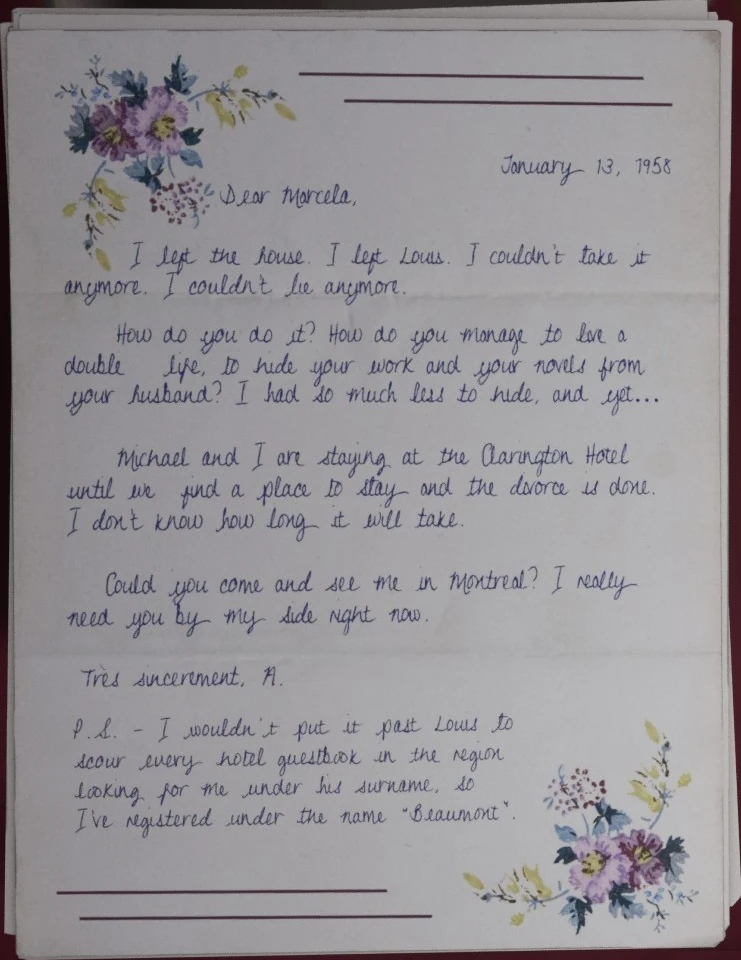 January 13, 1958
Dear Marcela,
I left the house. I left Louis. I couldn't take it
anymore. I couldn't lie anymore.
How do you do it? How do you manage to live a
double life, to hide your work and your novels from
your husband? I had so much less to hide, and yet...
Michael and I are staying at the Clarington Hotel
until we find a place to stay and the divorce is done.
I don't know how long it will take.
Could you come and see me in Montreal? I really
need you by my side right now.
Très sincerement, A.
P.S. - I wouldn't put it past Louis to
scour every hotel guestbook in the region
looking for me under his surname, so
I've registered under the name "Beaumont".